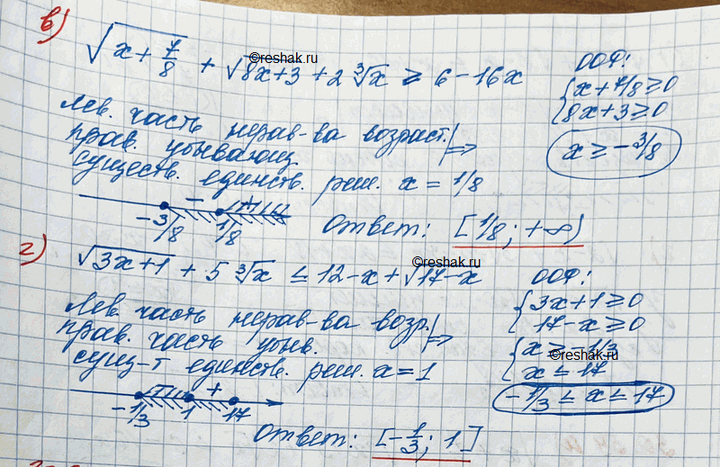 в)
√(x + 7/8) + √(8x+3) + 2∛x ≥ 6 − 16x
©reshak.ru
ООФ:
{ x + 7/8 ≥ 0
8x + 3 ≥ 0
x ≥ −3/8
Лев. часть нерав-ва возраст. | ⇒
прав. убывающ
существ. единств. реш. x = 1/8
− +
−3/8 1/8
Ответ: [1/8; +∞)
г)
√(3x+1) + 5∛x ≤ 12 − x + √(17−x)
©reshak.ru
ООФ:
{ 3x + 1 ≥ 0
17 − x ≥ 0
{ x ≥ −1/3
x ≤ 17
©reshak.ru
−1/3 ≤ x ≤ 17
Лев. часть нерав-ва возр. | ⇒
прав. часть убыв.
сущ-т единств. реш. x = 1
− +
−1/3 1 17
Ответ: [−1/3; 1]